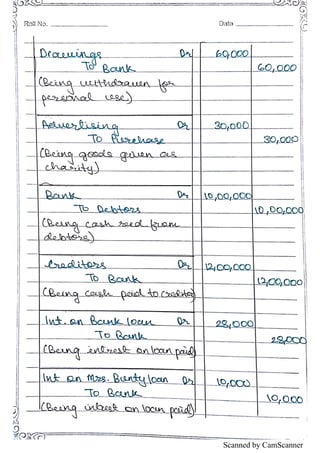 Roll No. Date
Drawings Dr 60,000
To Bank 60,000
(Being withdrawn for
personal use)
Advertising Dr 30,000
To Purchase 30,000
(Being goods given as
charity)
Bank Dr 10,00,000
To Debtors 10,00,000
(Being cash recd from
debtors)
Creditors Dr 12,00,000
To Bank 12,00,000
(Being cash paid to creditor)
Int. on Bank loan Dr 28,000
To Bank 28,000
(Being interest on loan paid)
Int on Mrs. Bunty loan Dr 10,000
To Bank 10,000
(Being interest on loan paid)
Scanned by CamScanner